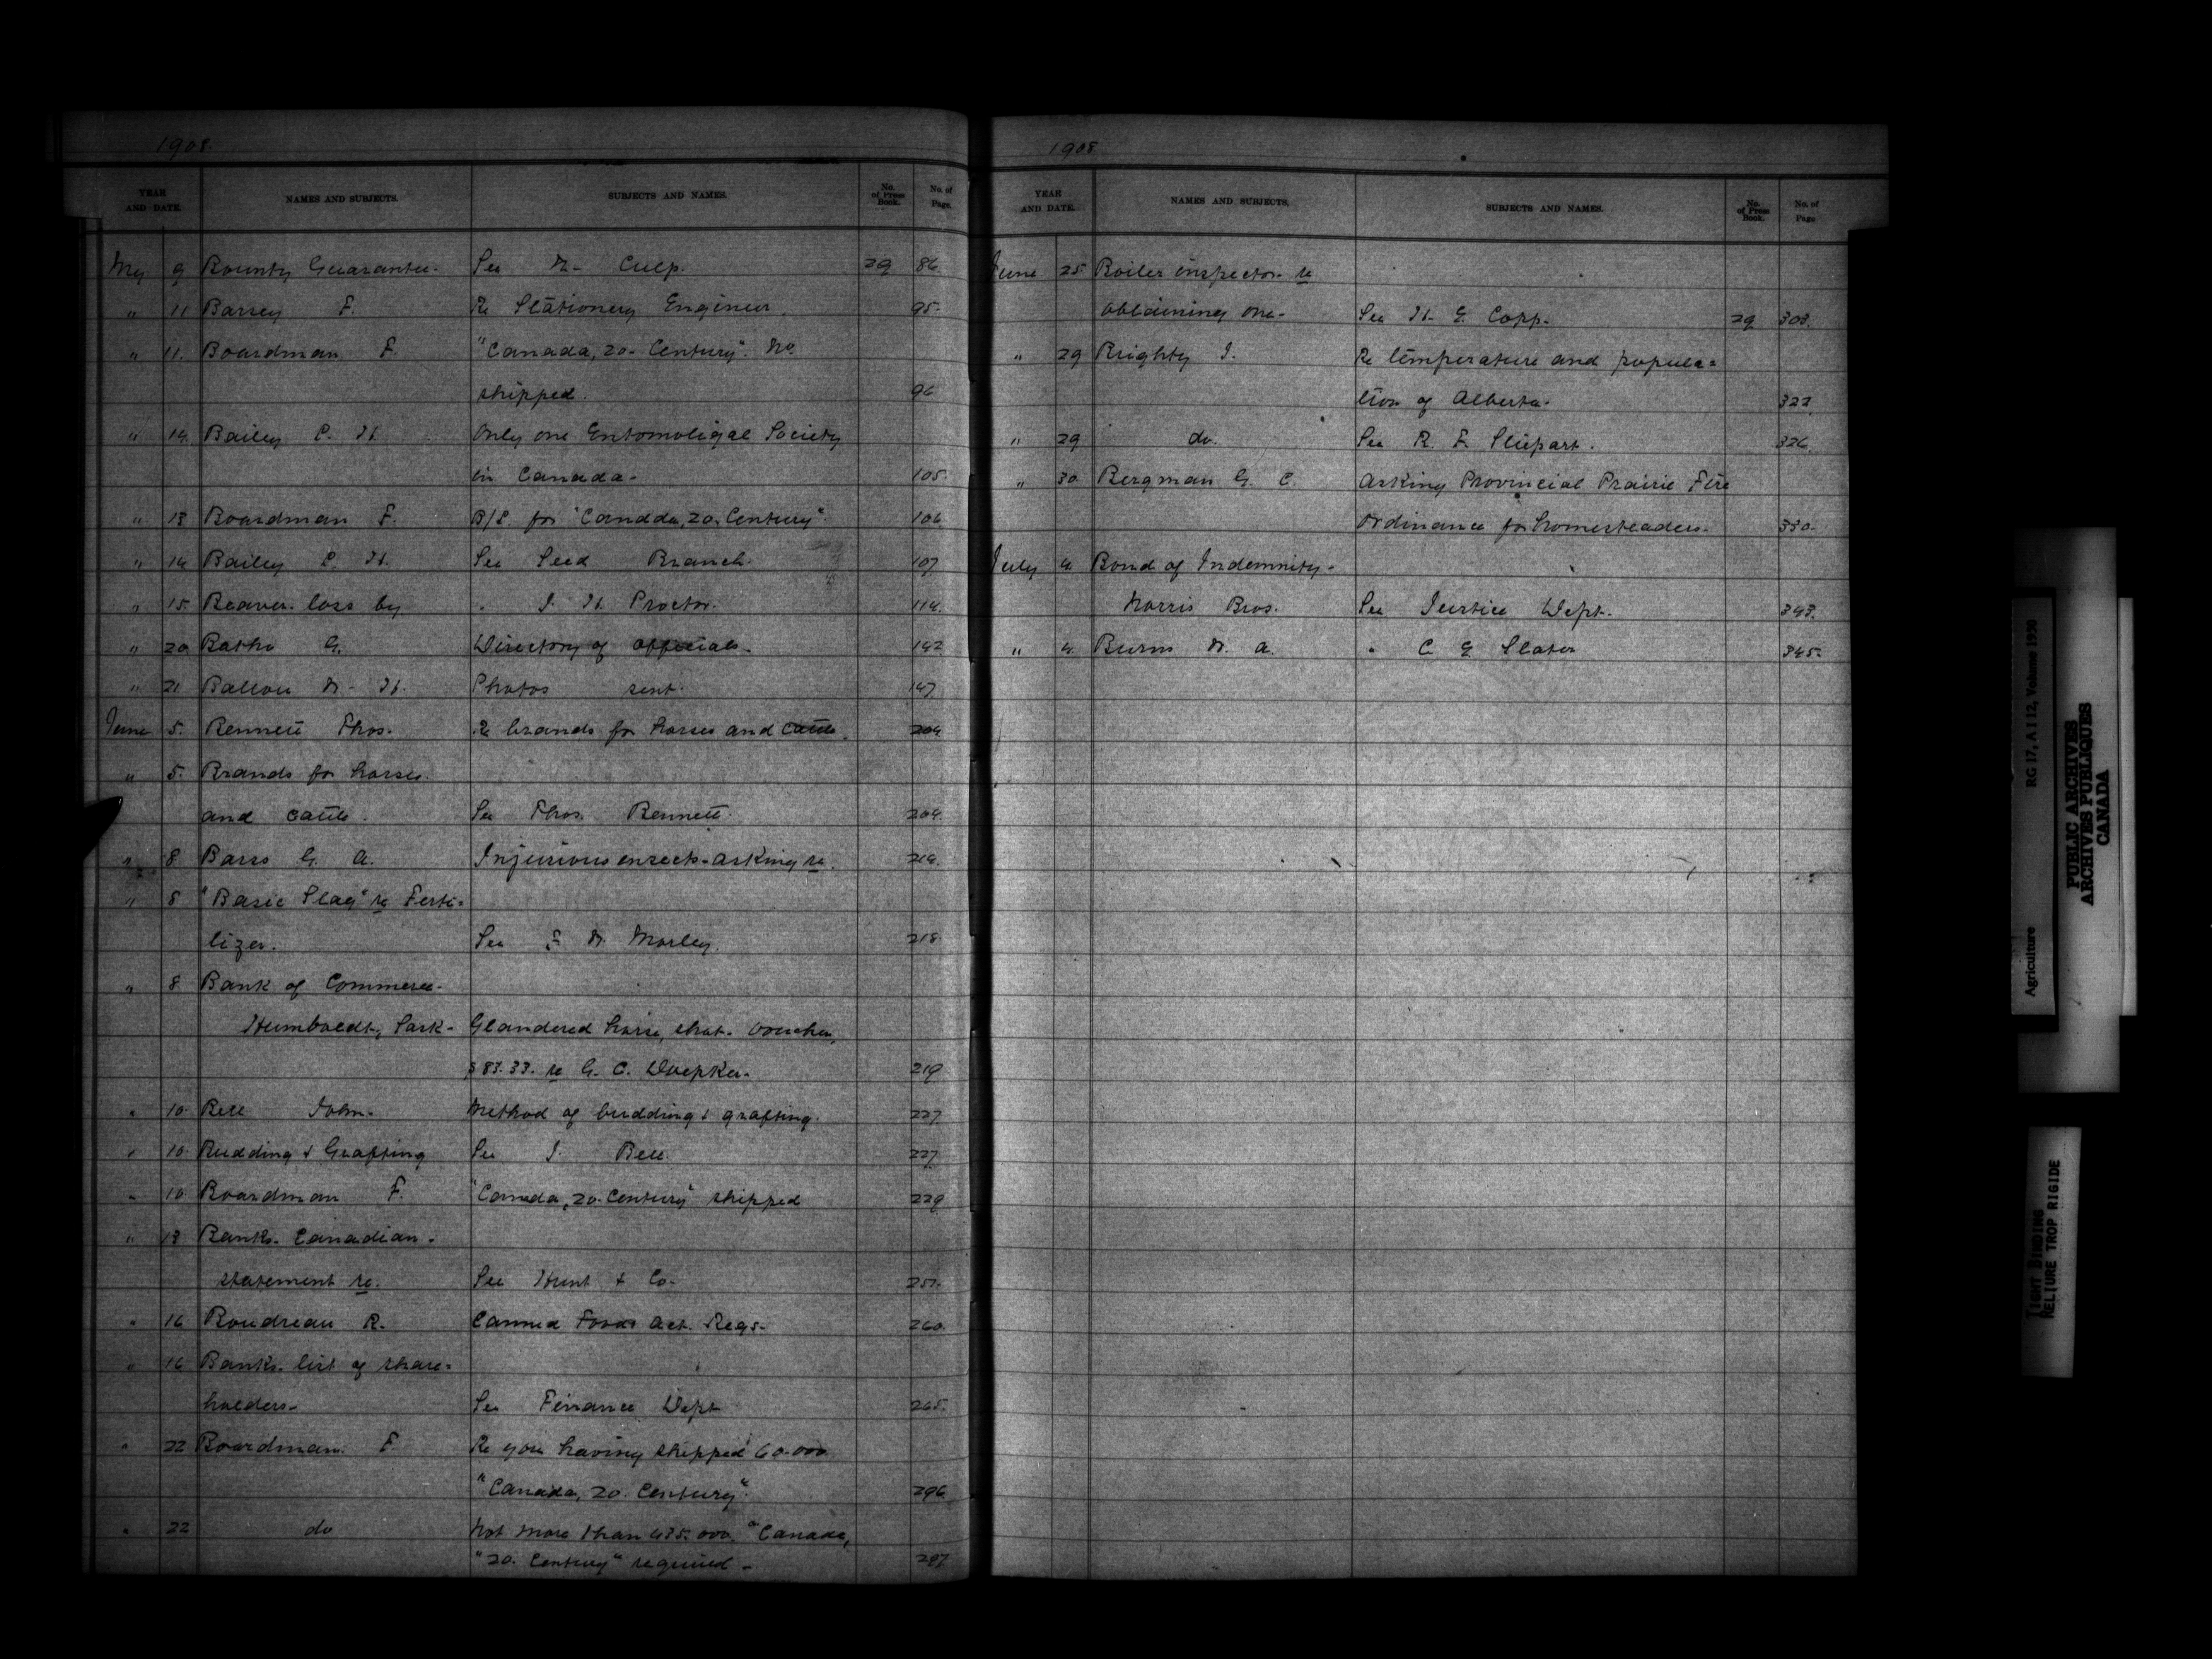 1908.
YEAR AND DATE. NAMES AND SUBJECTS. SUBJECTS AND NAMES. No. of Press Book. No. of Page.
My 9 Bounty Guarantee. See Culp. 29 86.
" 11 Barsey F. Re Stationery Engineer. 95.
" 11. Boardman F. "Canada, 20. Century". No.
shipped. 96
" 14. Bailey C. H. Only one Entomoligal Society
in Canada. 105.
" 13 Boardman F. B/L for "Canada, 20. Century". 106
" 14 Bailey C. H. See Seed Branch. 107
" 15. Beaver. loss by " J. H. Proctor. 114.
" 20 Batho G. Directory of officials. 142
" 21. Ballou W. H. Photos sent. 147
June 5. Bennett Thos. Re brands for horses and cattle. 204
" 5. Brands for horses.
and cattle. See Thos. Bennett. 204.
" 8. Barss G. A. Injurious insects. asking re. 214.
" 8 "Basic Slag" re Ferti=
lizer. See F. W. Morley. 218.
" 8 Bank of Commerce.
Humboldt, Sask. Glandered horse, shot. Voucher,
$83.33. re G. C. Doepker. 219
" 10. Bell John. Method of budding & grafting. 227.
" 10 Budding & Grafting See J. Bell. 227.
" 10 Boardman F. "Canada, 20. Century" shipped 229
" 13 Banks. Canadian.
statement re. See Hunt & Co. 251.
" 16 Boudreau R. Canned Foods Act. Regs. 260.
" 16 Banks. list of share=
holders. See Finance Dept. 265.
" 22 Boardman. F Re your having shipped 60.000
"Canada, 20. Century". 296.
" 22 do Not more than 435.000. "Canada,
"20. Century" required. 297
1908
YEAR AND DATE. NAMES AND SUBJECTS. SUBJECTS AND NAMES. No. of Press Book. No. of Page
June 25. Boiler inspector. re
obtaining one. See H. E. Copp. 29 303.
" 29 Brighty J. Re temperature and popula=
tion of Alberta. 322.
" 29 do. See R. F. Stupart. 326.
" 30. Bergman G. C. Asking Provincial Prairie Fire
Ordinance for homesteaders. 330.
July 4. Bond of Indemnity.
Norris Bros. See Justice Dept. 343.
" 4. Burns W. A. " C E Slater 345.
Agriculture RG 17, A I 12, Volume 1950
PUBLIC ARCHIVES
ARCHIVES PUBLIQUES
CANADA
TIGHT BINDING
RELIURE TROP RIGIDE